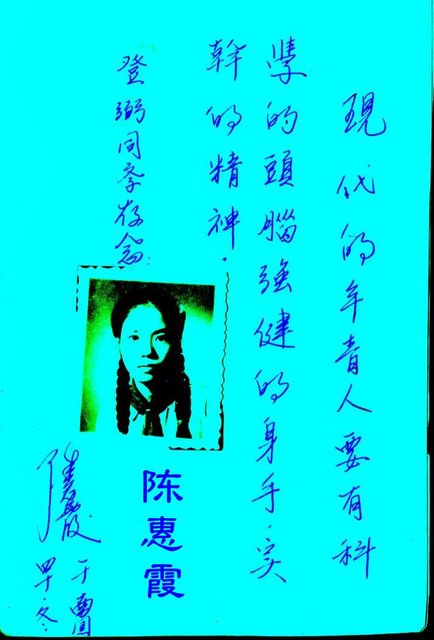 現代的年青人要有科
學的頭腦強健的身手.实
幹的精神.
登弼同学存念
陈惠霞
于
冬